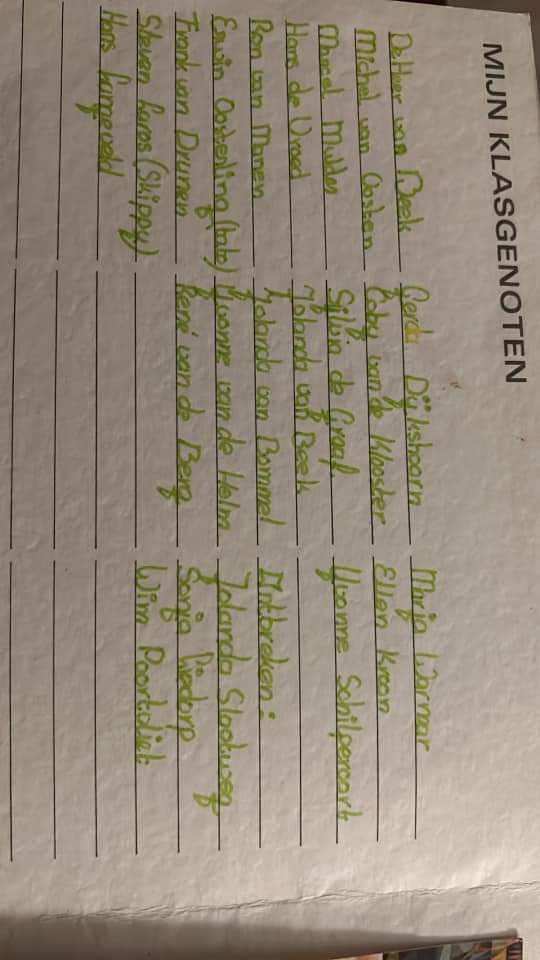 MIJN KLASGENOTEN
Dethier van Beek
Michel van Oosten
Marcel Mulder
Hans de Vroed
Ron van Manen
Erwin Oosterling (bolo)
Frank van Drunen
Steven Laros (Skippy)
Hans Langeveld
Gerda Dijkshoorn
Roby van de Klooster
Silvia de Graaf
Jolanda van Beek
Jolanda van Bommel
Yvonne van de Helm
René van de Berg
Mirja Warnar
Ellen Kroon
Yvonne Schilperoort
Ontbreken:
Jolanda Slootweg
Sonja
Wim Poortvliet